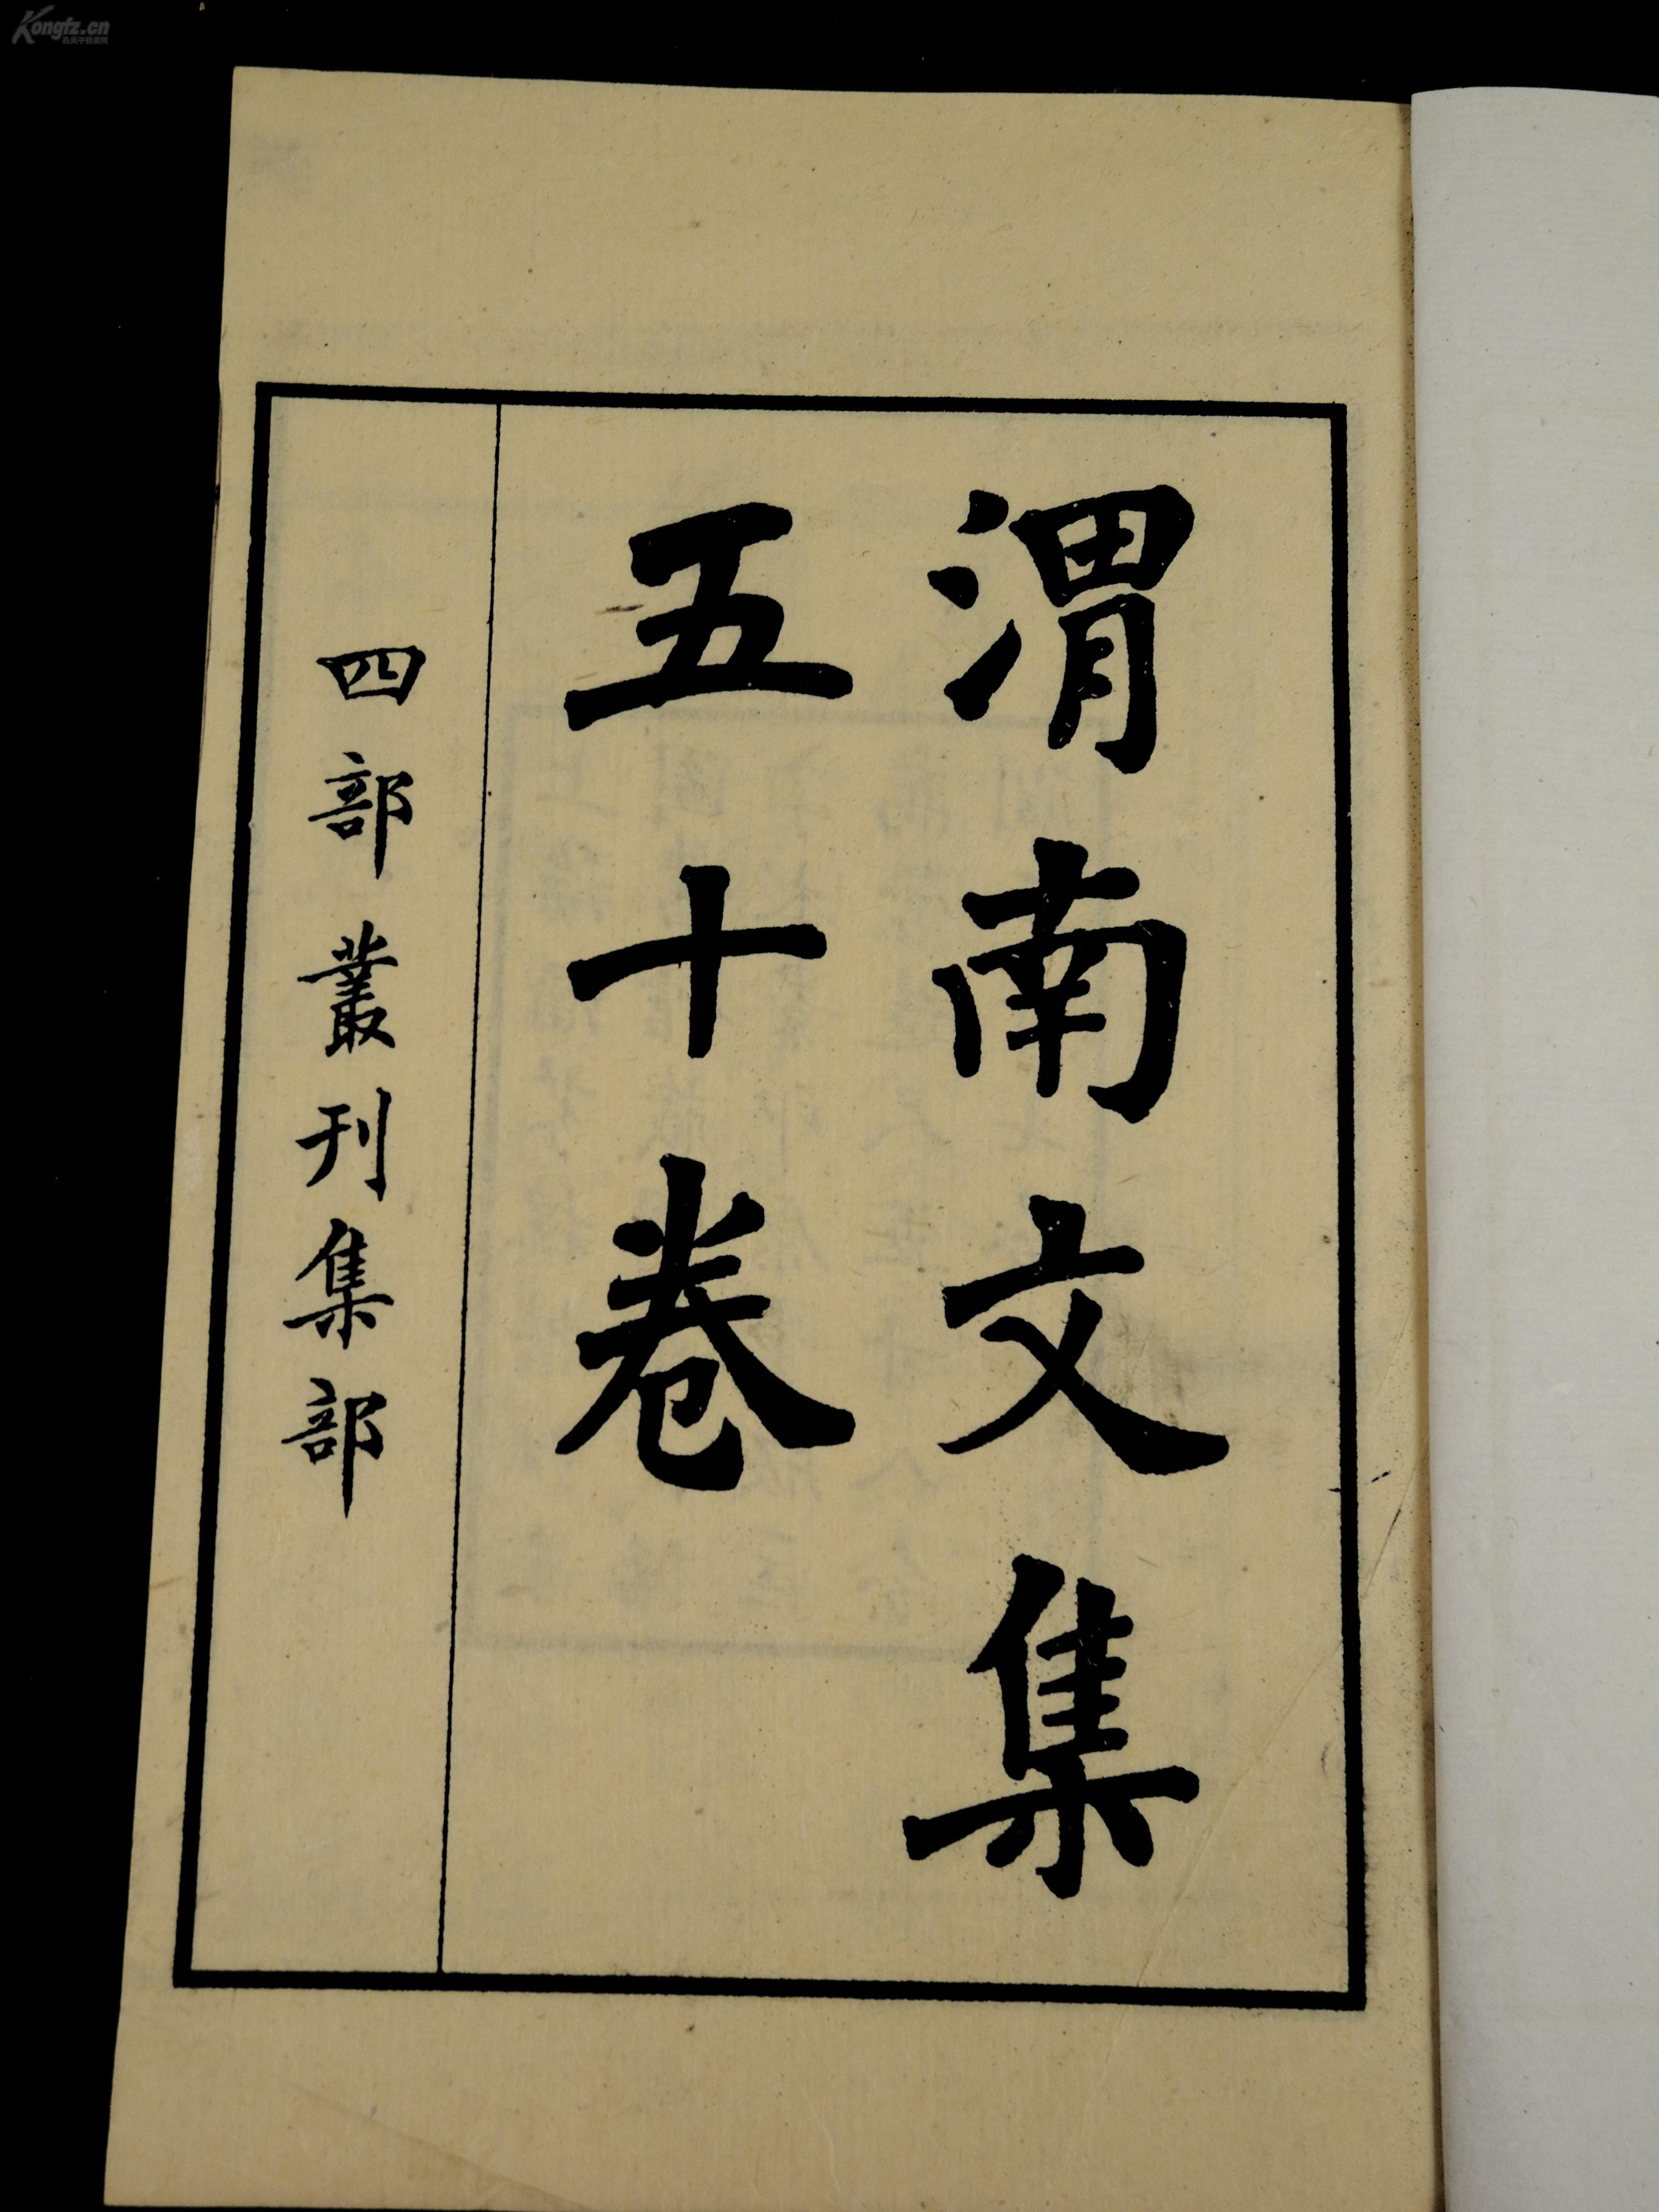 渭南文集
五十卷
四部叢刊集部
Kongfz.cn